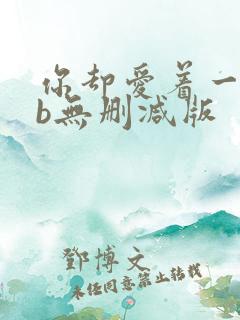 你却愛着一
b無删减版
鄧博文
未经同意禁止转载